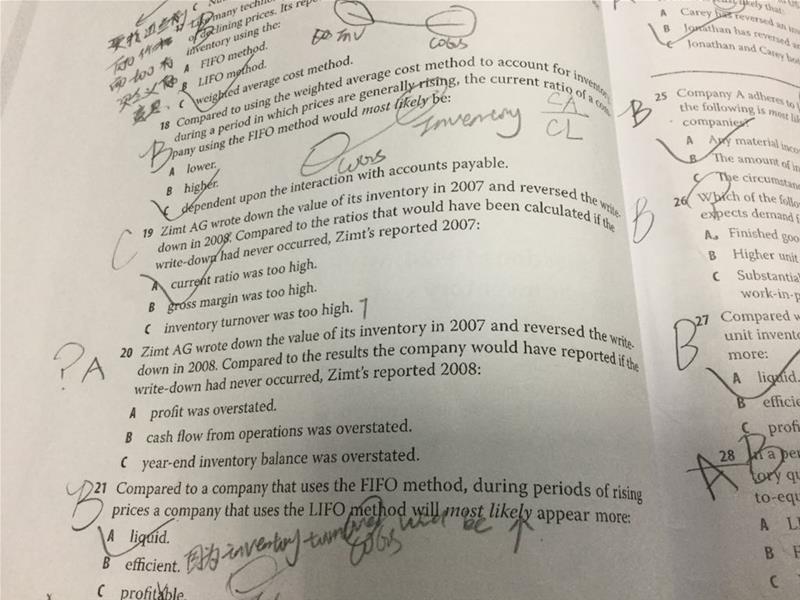 many techno
of declining prices. Its repo
inventory using the:
A FIFO method.
B LIFO method.
C weighted average cost method.
EO INV
COGS
18 Compared to using the weighted average cost method to account for inventory
during a period in which prices are generally rising, the current ratio of a com-
pany using the FIFO method would most likely be:
B
Inventory
CA
CL
A lower.
B higher.
C dependent upon the interaction with accounts payable.
19 Zimt AG wrote down the value of its inventory in 2007 and reversed the write-
down in 2008. Compared to the ratios that would have been calculated if the
write-down had never occurred, Zimt's reported 2007:
C
A current ratio was too high.
B gross margin was too high.
C inventory turnover was too high.
20 Zimt AG wrote down the value of its inventory in 2007 and reversed the write-
down in 2008. Compared to the results the company would have reported if the
write-down had never occurred, Zimt's reported 2008:
? A
A profit was overstated.
B cash flow from operations was overstated.
C year-end inventory balance was overstated.
21 Compared to a company that uses the FIFO method, during periods of rising
prices a company that uses the LIFO method will most likely appear more:
B
A liquid.
B efficient.
因为 inventory turnover will be ↑
COGS
C profitable.
likely that:
A Carey has reversed an inv
B Jonathan has reversed a
C Jonathan and Carey bo
25 Company A adheres to
the following is most lik
companies?
B
A Any material inco
B The amount of in
C The circumstanc
26 Which of the follo
expects demand f
B
A Finished goo
B Higher unit
C Substantial
work-in-p
27 Compared w
unit invento
more:
B
A liquid.
B efficie
C profi
28 In a per
tory qu
to-equ
A B
A LI
B F
C